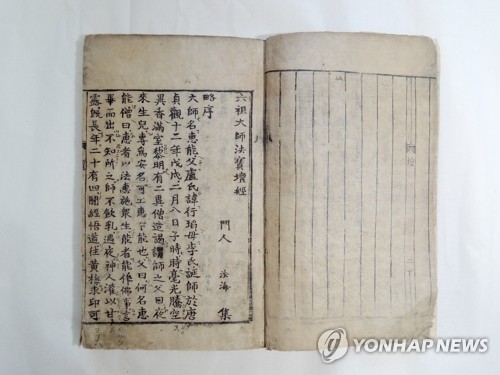 六祖大師法寶壇經
門人 法海 集
略序
大師名惠能父盧氏諱行瑫母李氏誕師於唐
貞觀十二年戊戌二月八日子時時毫光騰空
異香滿室黎明有二異僧造謁謂師之父曰夜
來生兒專爲安名可上惠下能也父曰何名惠
能僧曰惠者以法惠施衆生能者能作佛事言
畢而出不知所之師不飮乳過夜神人灌以甘
露旣長年二十有四聞經悟道往黃梅求印可
YONHAP NEWS